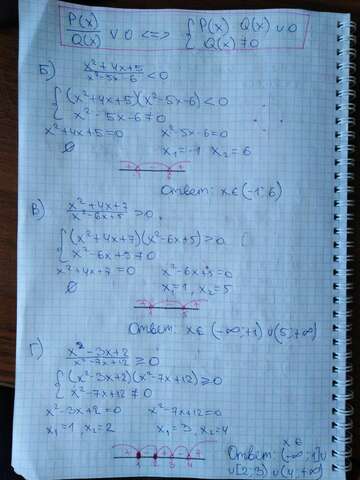 P(x)/Q(x) ∨ 0 <=> { P(x) · Q(x) ∨ 0
Q(x) ≠ 0
Б) (x²+4x+5)/(x²-5x-6) < 0
{ (x²+4x+5)(x²-5x-6) < 0
x²-5x-6 ≠ 0
x²+4x+5=0 x²-5x-6=0
∅ x₁=-1 x₂=6
Ответ: x∈(-1;6)
В) (x²+4x+7)/(x²-6x+5) > 0
{ (x²+4x+7)(x²-6x+5) > 0
x²-6x+5 ≠ 0
x²+4x+7=0 x²-6x+5=0
∅ x₁=1, x₂=5
Ответ: x∈(-∞;1)∪(5;+∞)
Г) (x²-3x+2)/(x²-7x+12) ≥ 0
{ (x²-3x+2)(x²-7x+12) ≥ 0
x²-7x+12 ≠ 0
x²-3x+2=0 x²-7x+12=0
x₁=1, x₂=2 x₁=3, x₂=4
1 2 3 4
Ответ: x∈(-∞;1]∪
∪[2;3)∪(4;+∞)